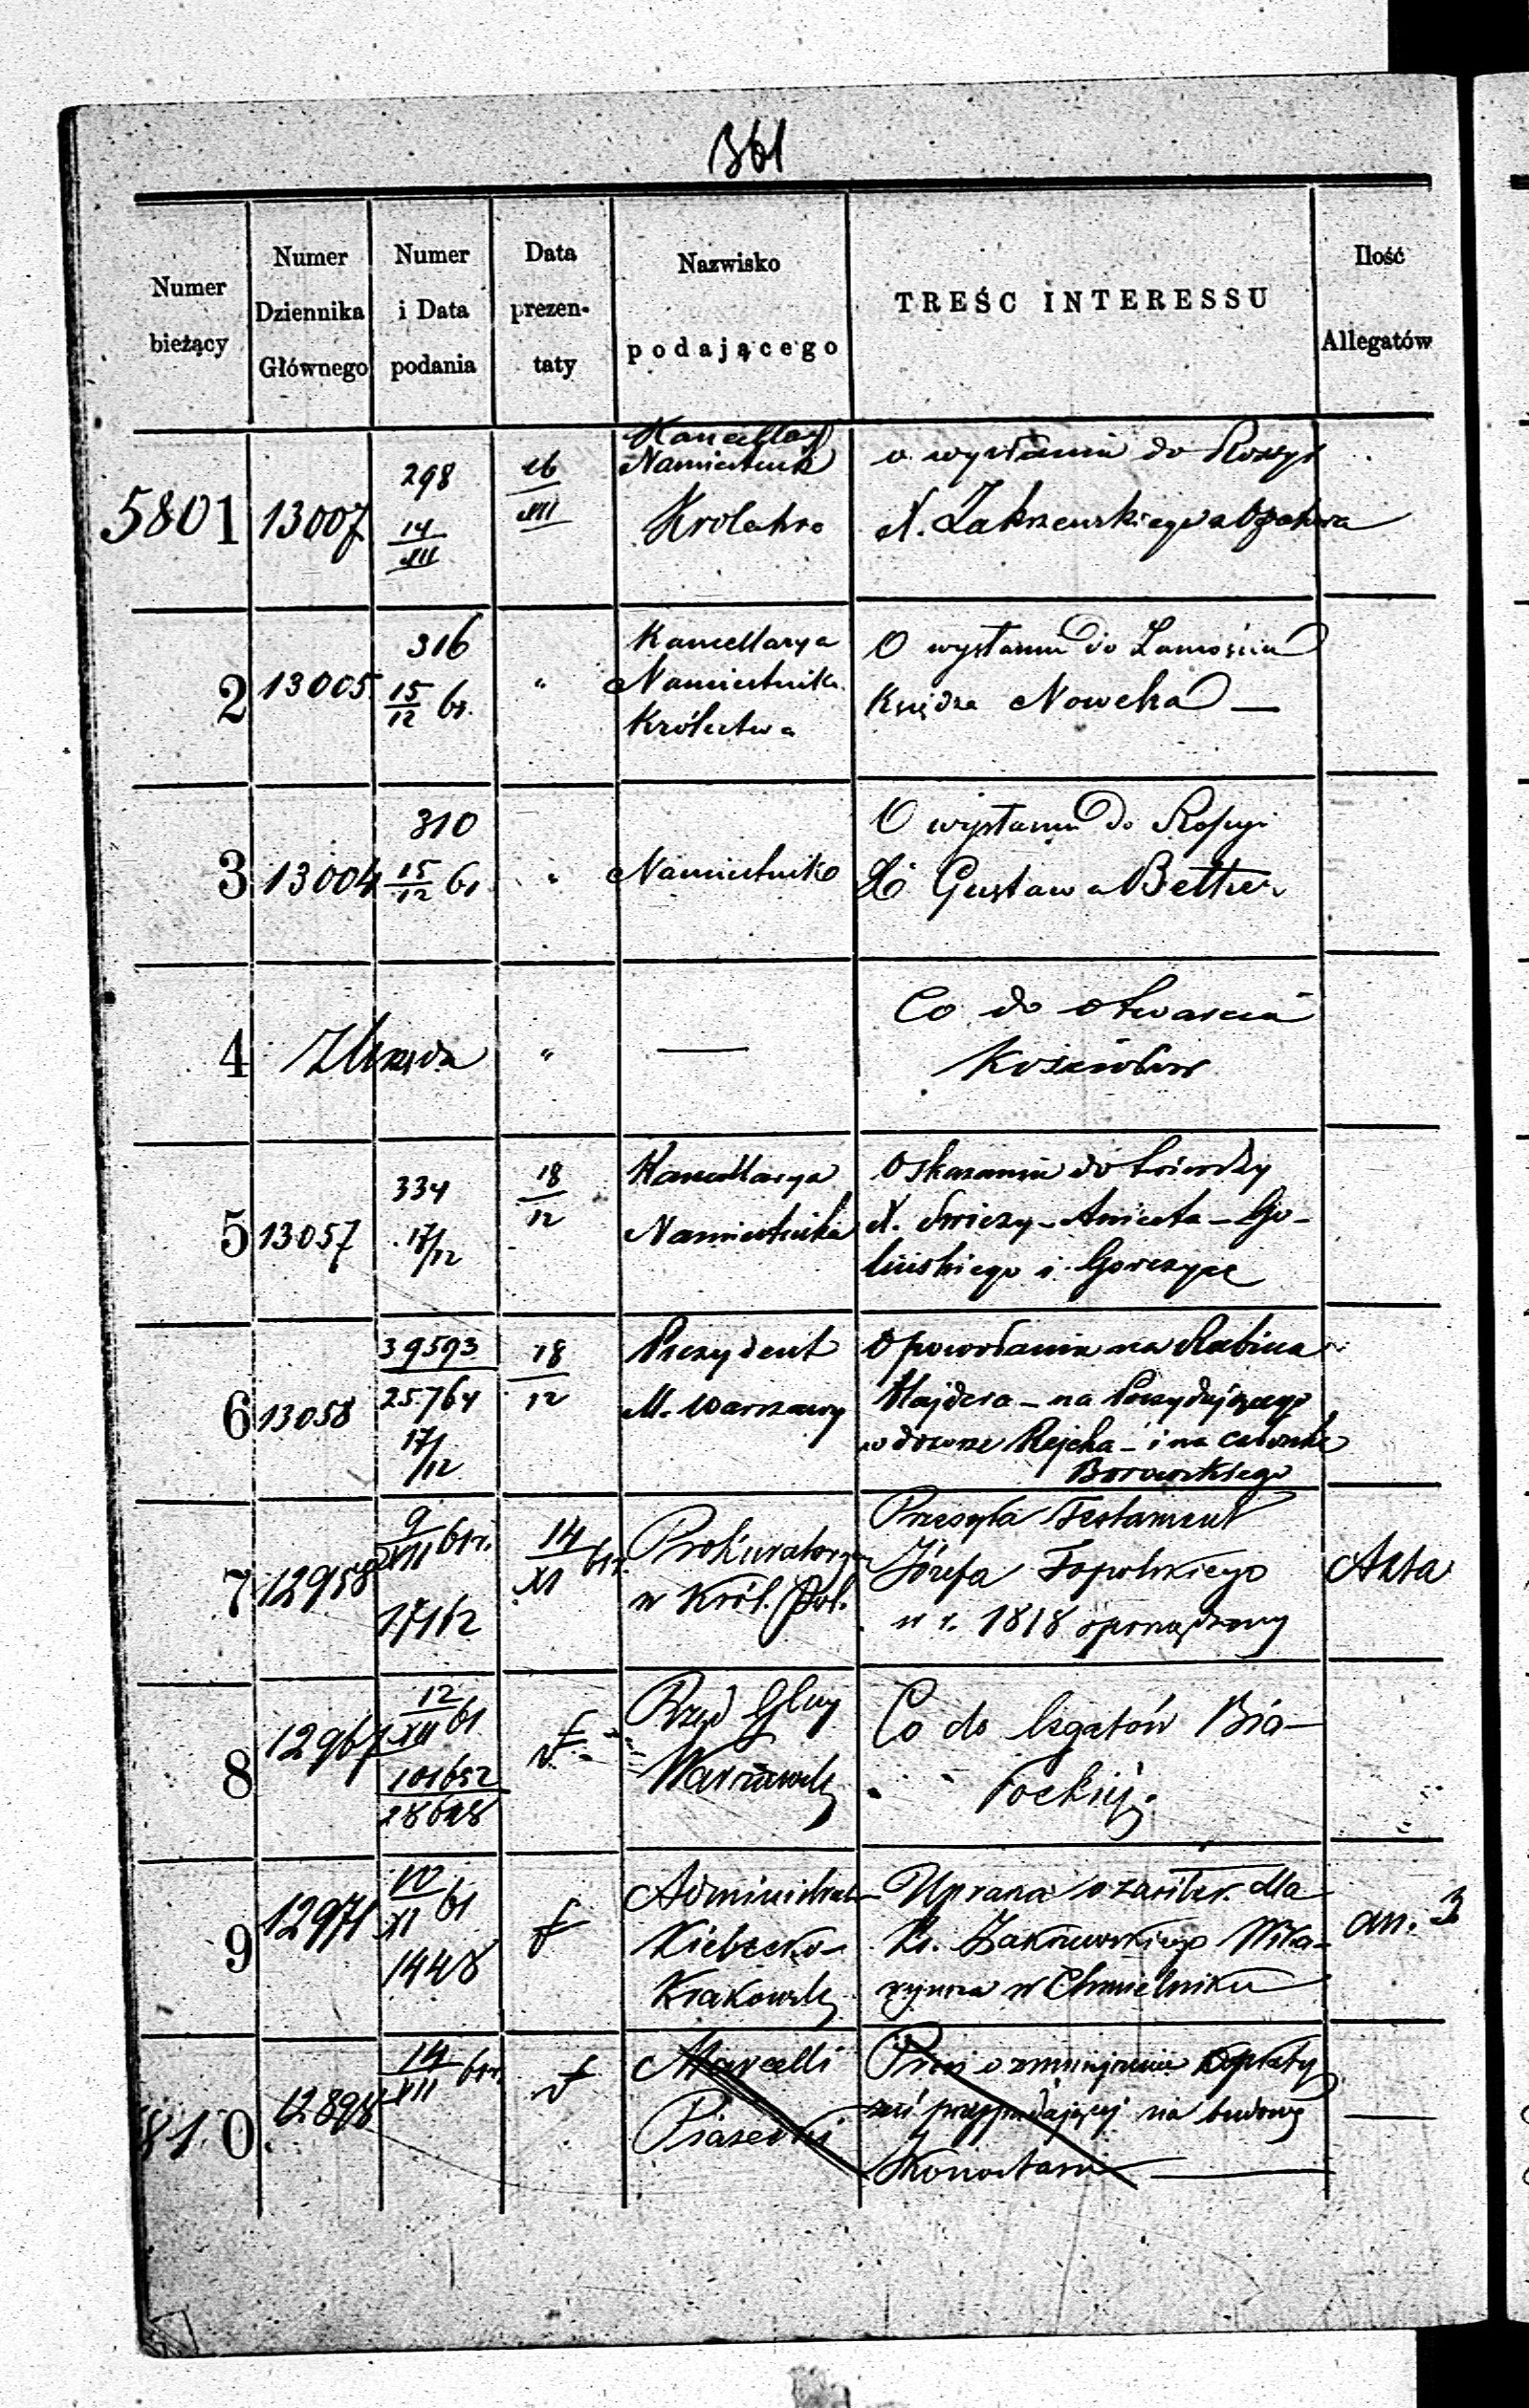 361
Numer bieżący
Numer Dziennika Głównego
Numer i Data podania
Data prezen- taty
Nazwisko podającego
TREŚC INTERESSU
Ilość Allegatów
5801 13007 298 14/XII 16/XII
Kancellarya
Namiestnika
Królestwa
o wysłaniu do Rossyi
X. Zakrzewskiego z Opatowa
2 13005 316 15/12 br. "
Kancellarya
Namiestnika
Królestwa
O wysłaniu do Zamościa
Księdza Noweka —
3 13004 310 15/12 br "
Namiestnika
O wysłaniu do Rossyi
X. Gustawa Bether
4 Z Urzędu " —
Co do otwarcia
Kościołów
5 13057 334 17/12 18/12
Kancellarya
Namiestnika
O skazaniu do twierdzy
X. Świeszy - Aniceta - Go-
lińskiego i Gorczyce
6 13058 39593/25764 17/12 18/12
Prezydent
M. Warszawy
O powołaniu na Rabina
Majzera - na Prezydującego
w dozorze Rejcha - i na członka
Borowskiego
7 12958 9/XII br. 17162 14/XI br.
Prokuratorya
w Król. Pol.
Przesyła Testament
Józefa Topolskiego
w r. 1818 sporządzony
Akta
8 12967 12/XII br 101652/28698
Rząd Gbny
Warszawsk
Co do legatów Bia-
łockiej.
9 12971 10/XI br 1448
Administrator
Kielecko-
Krakowsk
Uprasza o zasiłek dla
Ks. Zakrzewskiego Wika-
ryusza w Chmielniku
an. 3
810. 12898 14/XII br.
Marcelli
Piasecki
Prosi o zmniejszenie opłaty
przypadającej na budowę
—